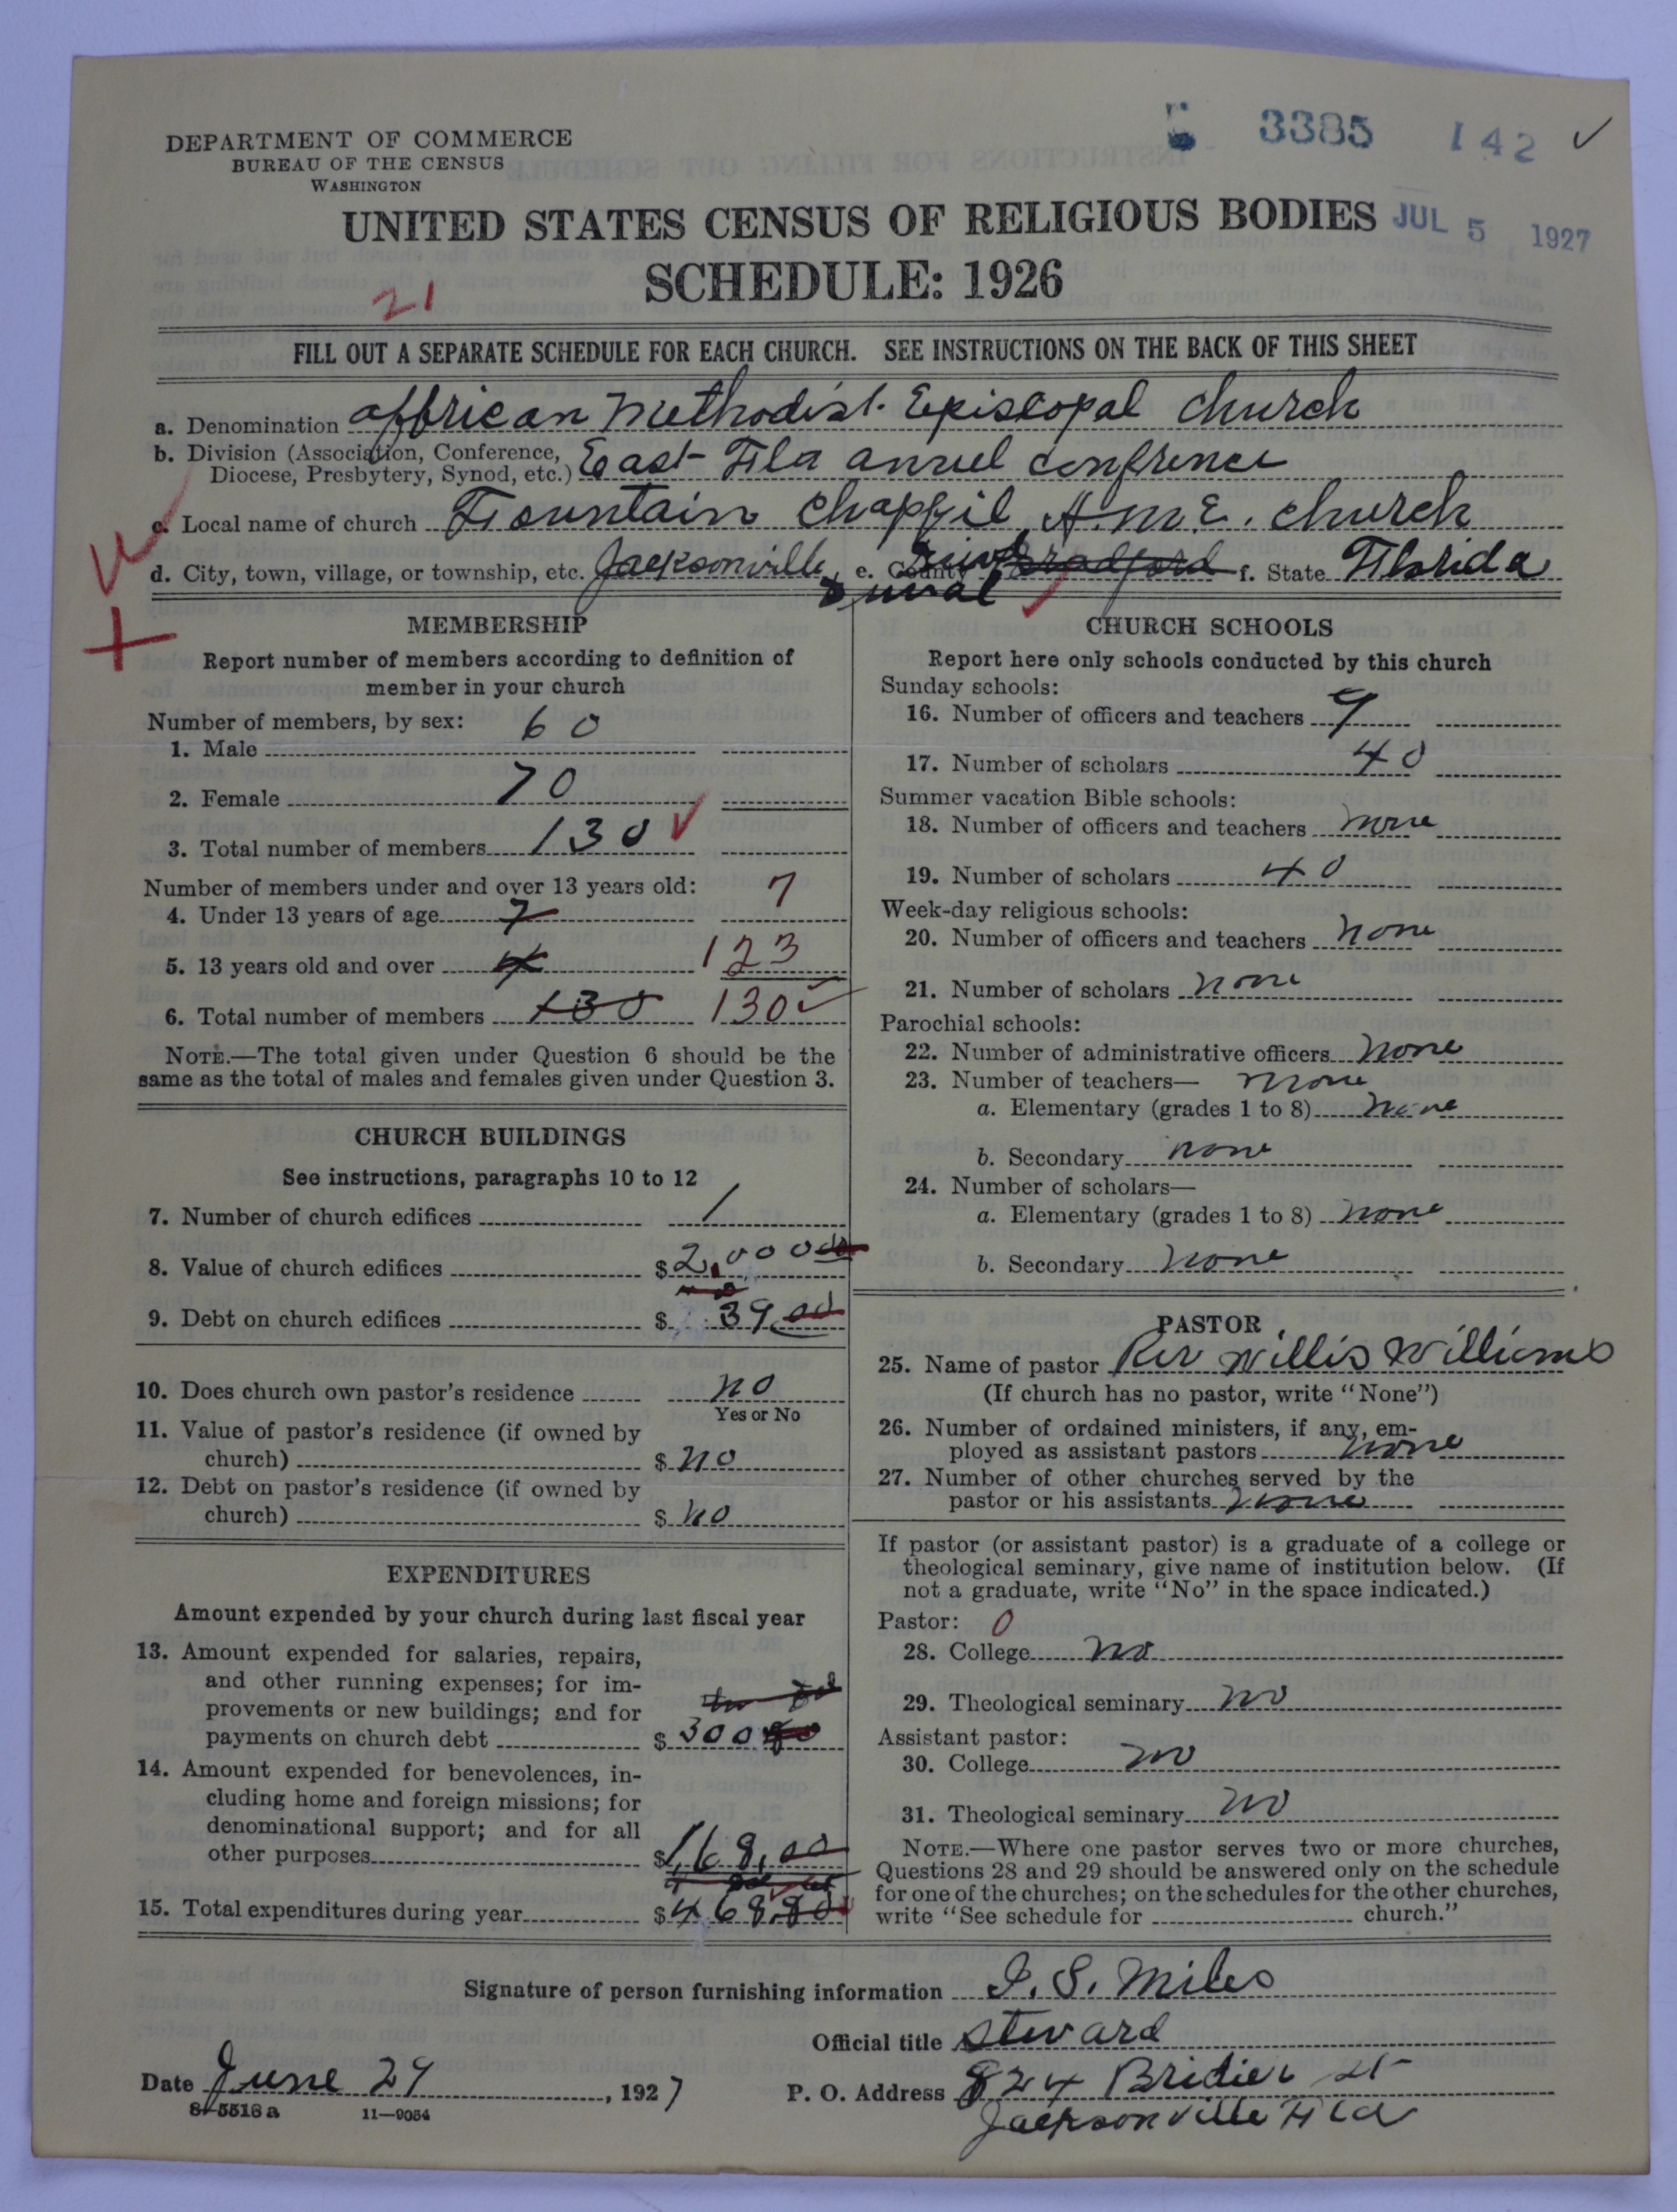 5 3385 142 ✓
DEPARTMENT OF COMMERCE
BUREAU OF THE CENSUS
WASHINGTON
UNITED STATES CENSUS OF RELIGIOUS BODIES JUL 5 1927
SCHEDULE: 1926
21
FILL OUT A SEPARATE SCHEDULE FOR EACH CHURCH. SEE INSTRUCTIONS ON THE BACK OF THIS SHEET
a. Denomination affrican Methodist Episcopal Church
b. Division (Association, Conference,
Diocese, Presbytery, Synod, etc.) East Fla annuel confrence
c. Local name of church Fountain Chappil A.M.E. Church
d. City, town, village, or township, etc. Jacksonville, e. County Bradford f. State Florida
Duval
MEMBERSHIP
Report number of members according to definition of
member in your church
Number of members, by sex:
1. Male 60
2. Female 70
3. Total number of members 130 ✓
Number of members under and over 13 years old:
4. Under 13 years of age 7 7
5. 13 years old and over 123
6. Total number of members 130 130 ✓
NOTE.—The total given under Question 6 should be the
same as the total of males and females given under Question 3.
CHURCH BUILDINGS
See instructions, paragraphs 10 to 12
7. Number of church edifices 1
8. Value of church edifices $ 2,000 00
9. Debt on church edifices $ 39 00
10. Does church own pastor's residence no
Yes or No
11. Value of pastor's residence (if owned by
church) $ no
12. Debt on pastor's residence (if owned by
church) $ no
EXPENDITURES
Amount expended by your church during last fiscal year
13. Amount expended for salaries, repairs,
and other running expenses; for im-
provements or new buildings; and for
payments on church debt $ 300
14. Amount expended for benevolences, in-
cluding home and foreign missions; for
denominational support; and for all
other purposes $ 168,00
15. Total expenditures during year $ 468
CHURCH SCHOOLS
Report here only schools conducted by this church
Sunday schools:
16. Number of officers and teachers 9
17. Number of scholars 40
Summer vacation Bible schools:
18. Number of officers and teachers none
19. Number of scholars 40
Week-day religious schools:
20. Number of officers and teachers none
21. Number of scholars none
Parochial schools:
22. Number of administrative officers none
23. Number of teachers— none
a. Elementary (grades 1 to 8) none
b. Secondary none
24. Number of scholars—
a. Elementary (grades 1 to 8) none
b. Secondary none
PASTOR
25. Name of pastor Rev Willis Williams
(If church has no pastor, write "None")
26. Number of ordained ministers, if any, em-
ployed as assistant pastors none
27. Number of other churches served by the
pastor or his assistants none
If pastor (or assistant pastor) is a graduate of a college or
theological seminary, give name of institution below. (If
not a graduate, write "No" in the space indicated.)
Pastor: 0
28. College no
29. Theological seminary no
Assistant pastor:
30. College no
31. Theological seminary no
NOTE.—Where one pastor serves two or more churches,
Questions 28 and 29 should be answered only on the schedule
for one of the churches; on the schedules for the other churches,
write "See schedule for church."
Signature of person furnishing information I. S. Miles
Official title Steward
Date June 29, 1927 P. O. Address 824 Bridier St
Jacksonville Fla
8-5518 a 11-9054